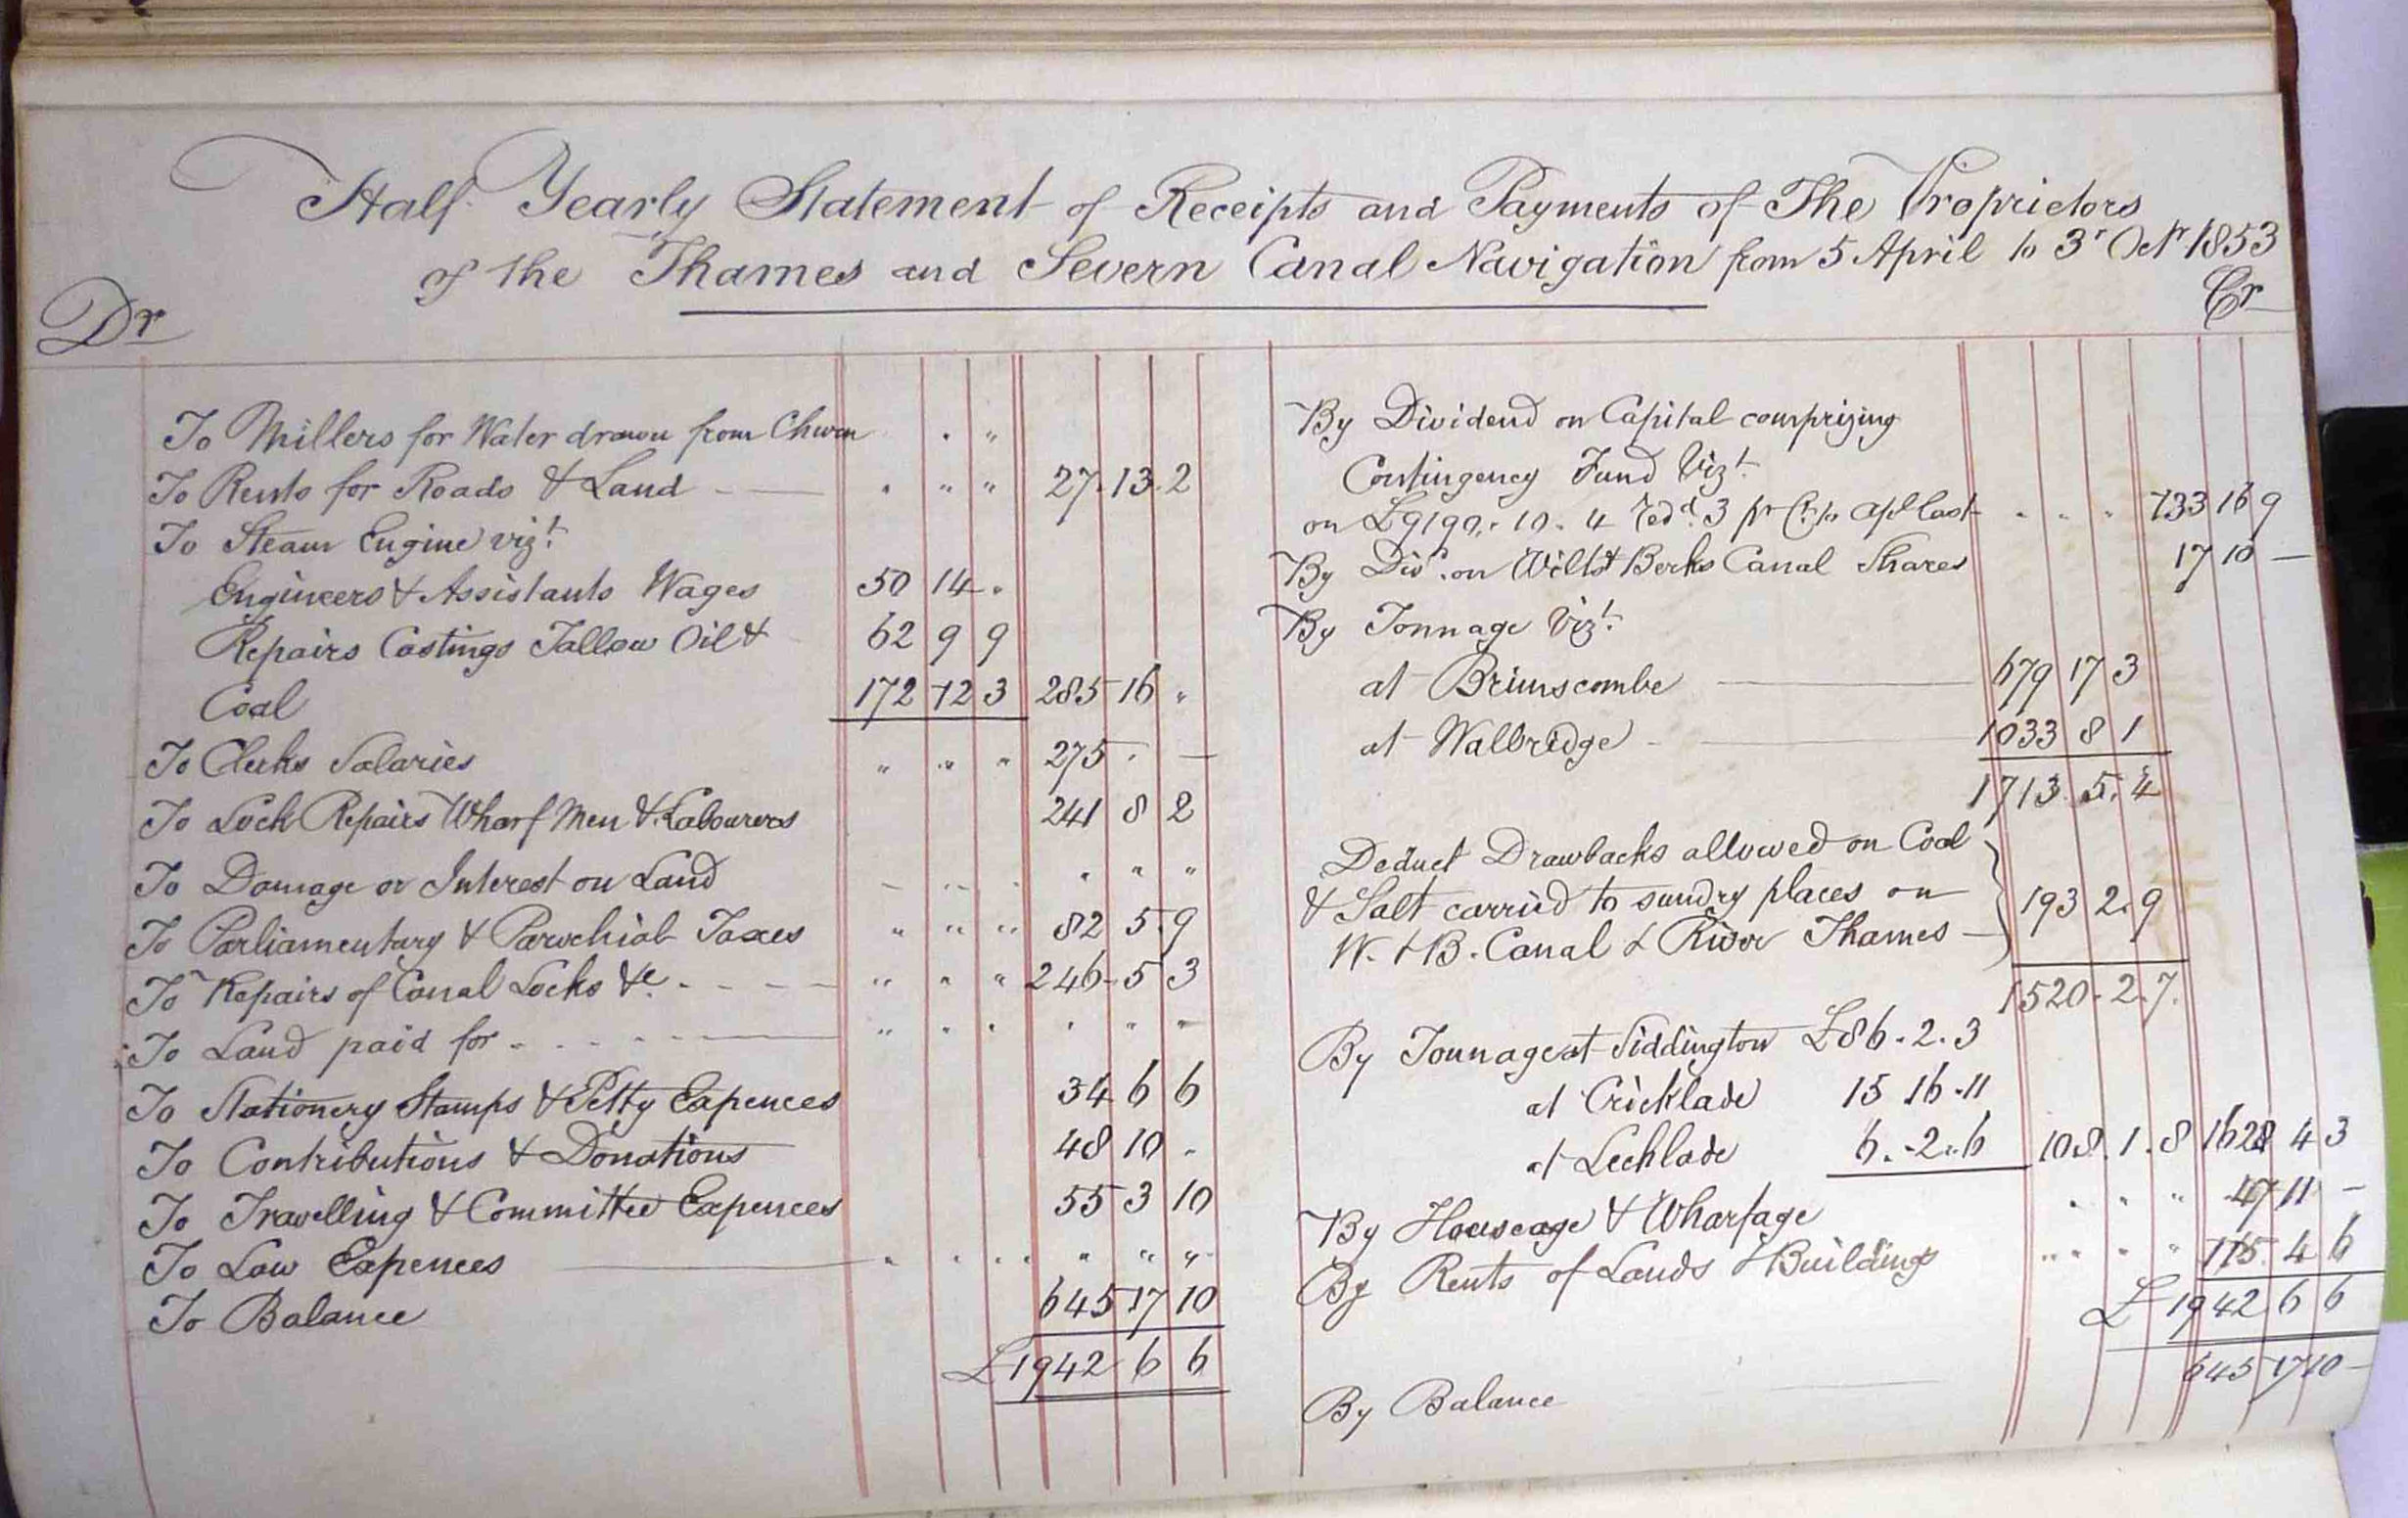 Half Yearly Statement of Receipts and Payments of The Proprietors
of the Thames and Severn Canal Navigation from 5 April to 3r Octr 1853
Dr
Cr
To Millers for Water drawn from Churn . "
To Rents for Roads & Land " " " 27. 13. 2
To Steam Engine vizt
Engineers & Assistants Wages 50 14 "
Repairs Castings Tallow Oil & 62 9 9
Coal 172 12 3 285 16 "
To Clerks Salaries " " " 275 . —
To Lock Repairs Wharf Men & Labourers 241 8 2
To Damage or Interest on Land — " " . " " "
To Parliamentary & Parochial Taxes " " " 82 5. 9
To Repairs of Canal Locks &c. " " " 246 - 5 3
To Land paid for " " " " " "
To Stationery Stamps & Petty Expences 34 6 6
To Contributions & Donations 48 10 "
To Travelling & Committee Expences 55 3 10
To Law Expences " " " " " "
To Balance 645 17 10
£ 1942 6 6
By Dividend on Capital comprizing
Contingency Fund Vizt
on £9190. 10. 4 Redd. 3 pr Ct. to Apl last " " " 133 16 9
By Divd. on Wilts & Berks Canal Shares 17 10 —
By Tonnage Vizt.
at Brimscombe 679 17 3
at Wallbridge 1033 8 1
1713. 5. 4
Deduct Drawbacks allowed on Coal
& Salt carried to sundry places on 193 2. 9
W. & B. Canal & River Thames
1520. 2. 7.
By Tonnage at Siddington £86. 2. 3
at Cricklade 15 16. 11
at Lechlade 6. 2. 6 108. 1. 8 1628 4 3
By Houseage & Wharfage " " " 47 11 —
By Rents of Lands & Buildings " " " 115. 4 6
£ 1942 6 6
By Balance 645 17 10 —